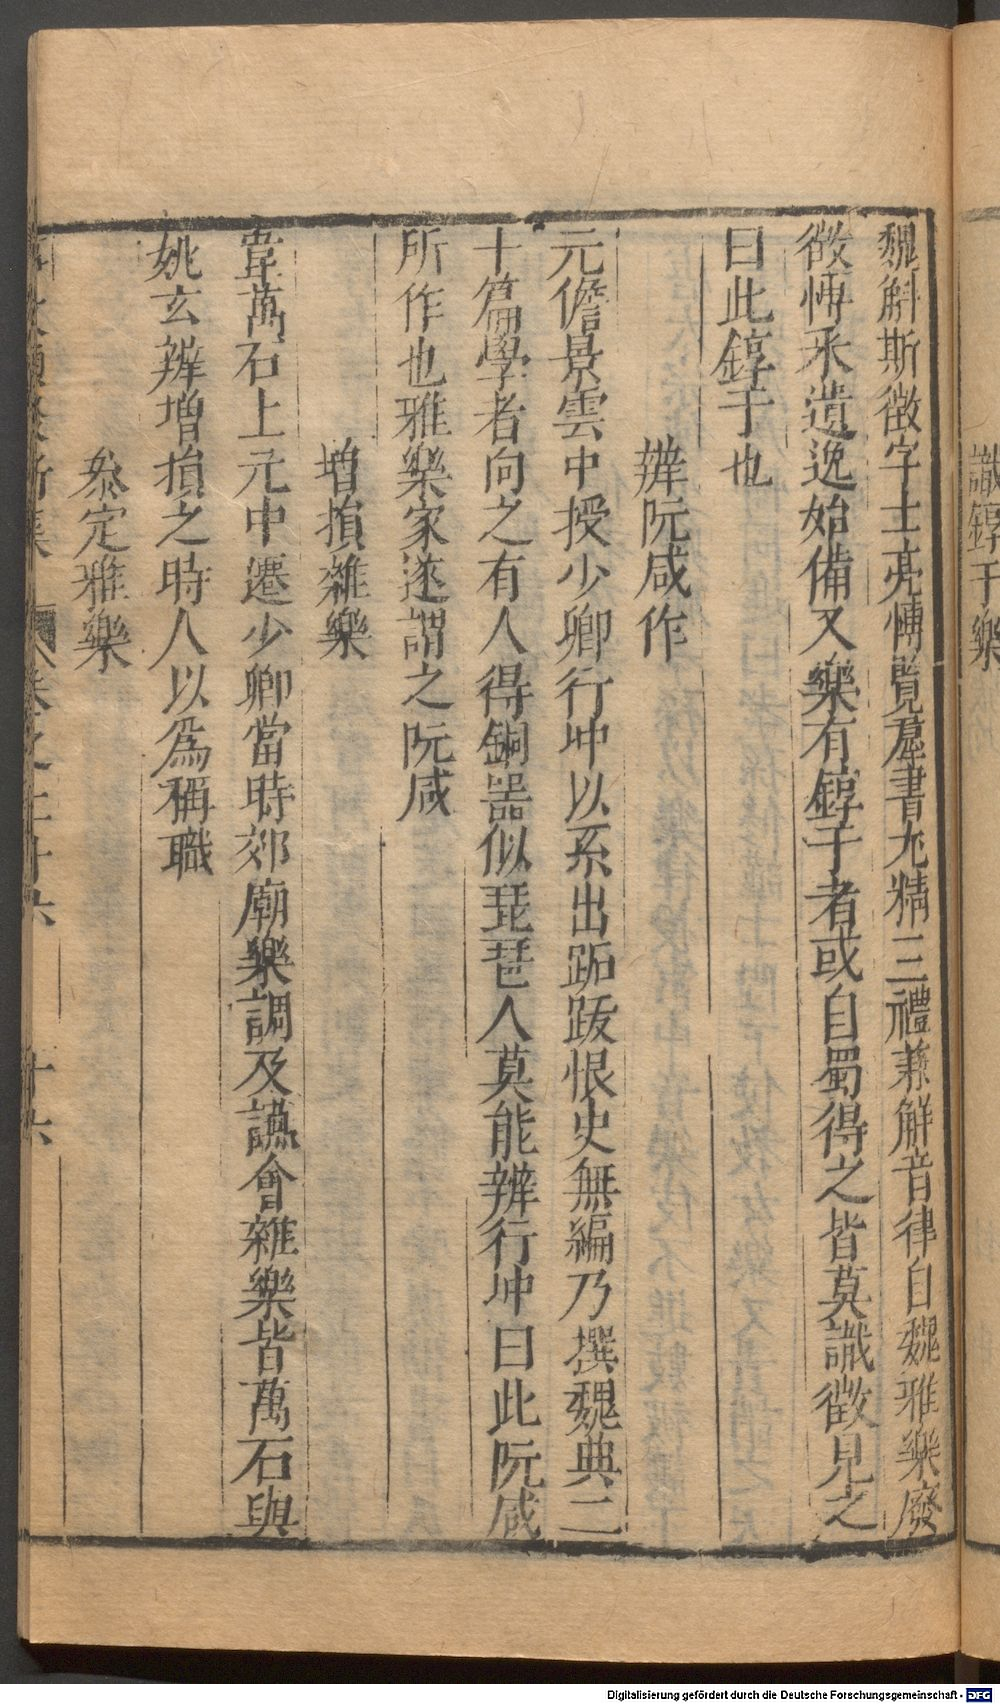 識錞于樂
魏斛斯徵字士亮愽覽羣書尤精三禮兼解音律自魏雅樂廢
徵愽釆遺逸始備又樂有錞于者或自蜀得之皆莫識徵見之
曰此錞于也
辨阮咸作
元儋景雲中授少卿行冲以系出跖跋恨史無編乃撰魏典二
十篇學者向之有人得銅器似琵琶人莫能辨行冲曰此阮咸
所作也雅樂家遂謂之阮咸
增損雜樂
韋萬石上元中遷少卿當時郊廟樂調及讌會雜樂皆萬石與
姚玄辨增損之時人以爲稱職
叅定雅樂
新集 卷之三十六 十六
Digitalisierung gefördert durch die Deutsche Forschungsgemeinschaft - DFG